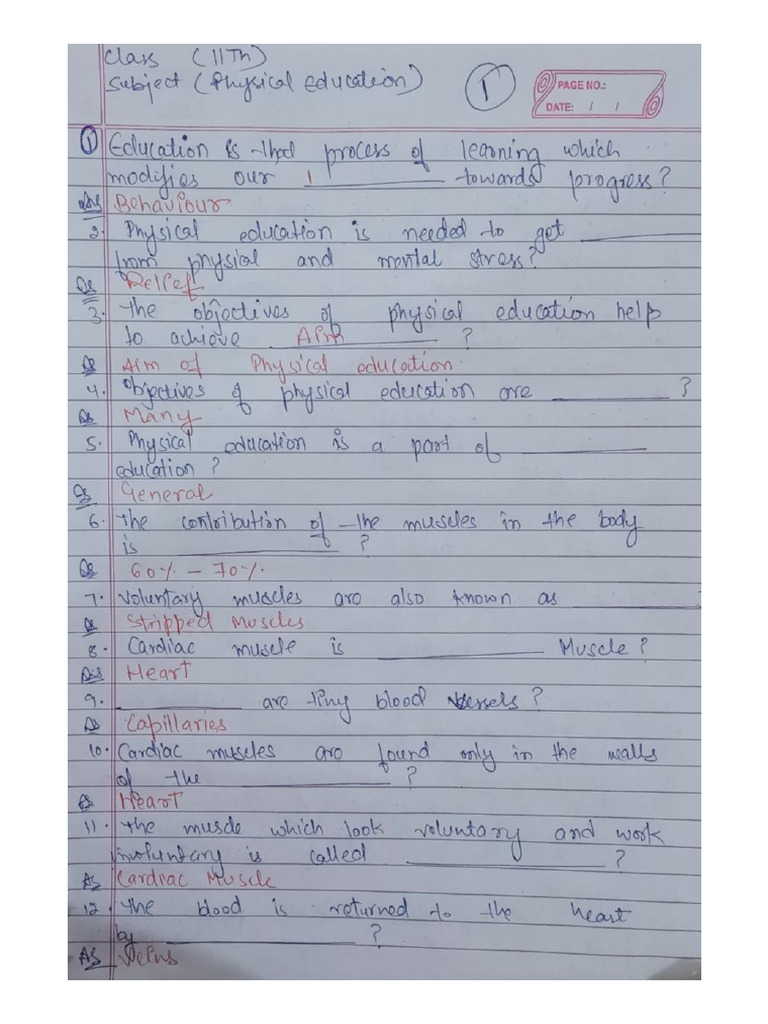 Class (11Th)
Subject (Physical Education) 1
PAGE NO.:
DATE: / /
1 Education is that process of learning which
modifies our ________ towards progress?
Ans Behaviour
2. Physical education is needed to get ________
from physial and mental stress?
As Relief
3. The objectives of physical education help
to achieve Aim ________ ?
As Aim of Physical education.
4. Objectives of physical education are ________ ?
As Many
5. Physical education is a part of ________
education ?
As General
6. The contribution of the muscles in the body
is ________ ?
As 60% - 70%.
7. Voluntary muscles are also known as ________
As Stripped Muscles
8. Cardiac muscle is ________ Muscle ?
Ans Heart
9. ________ are tiny blood vessels ?
As Capillaries
10. Cardiac muscles are found only in the walls
of the ________ ?
As Heart
11. The muscle which look voluntary and work
involuntary is called ________ ?
As Cardiac Muscle
12. The blood is returned to the heart
by ________ ?
As Veins